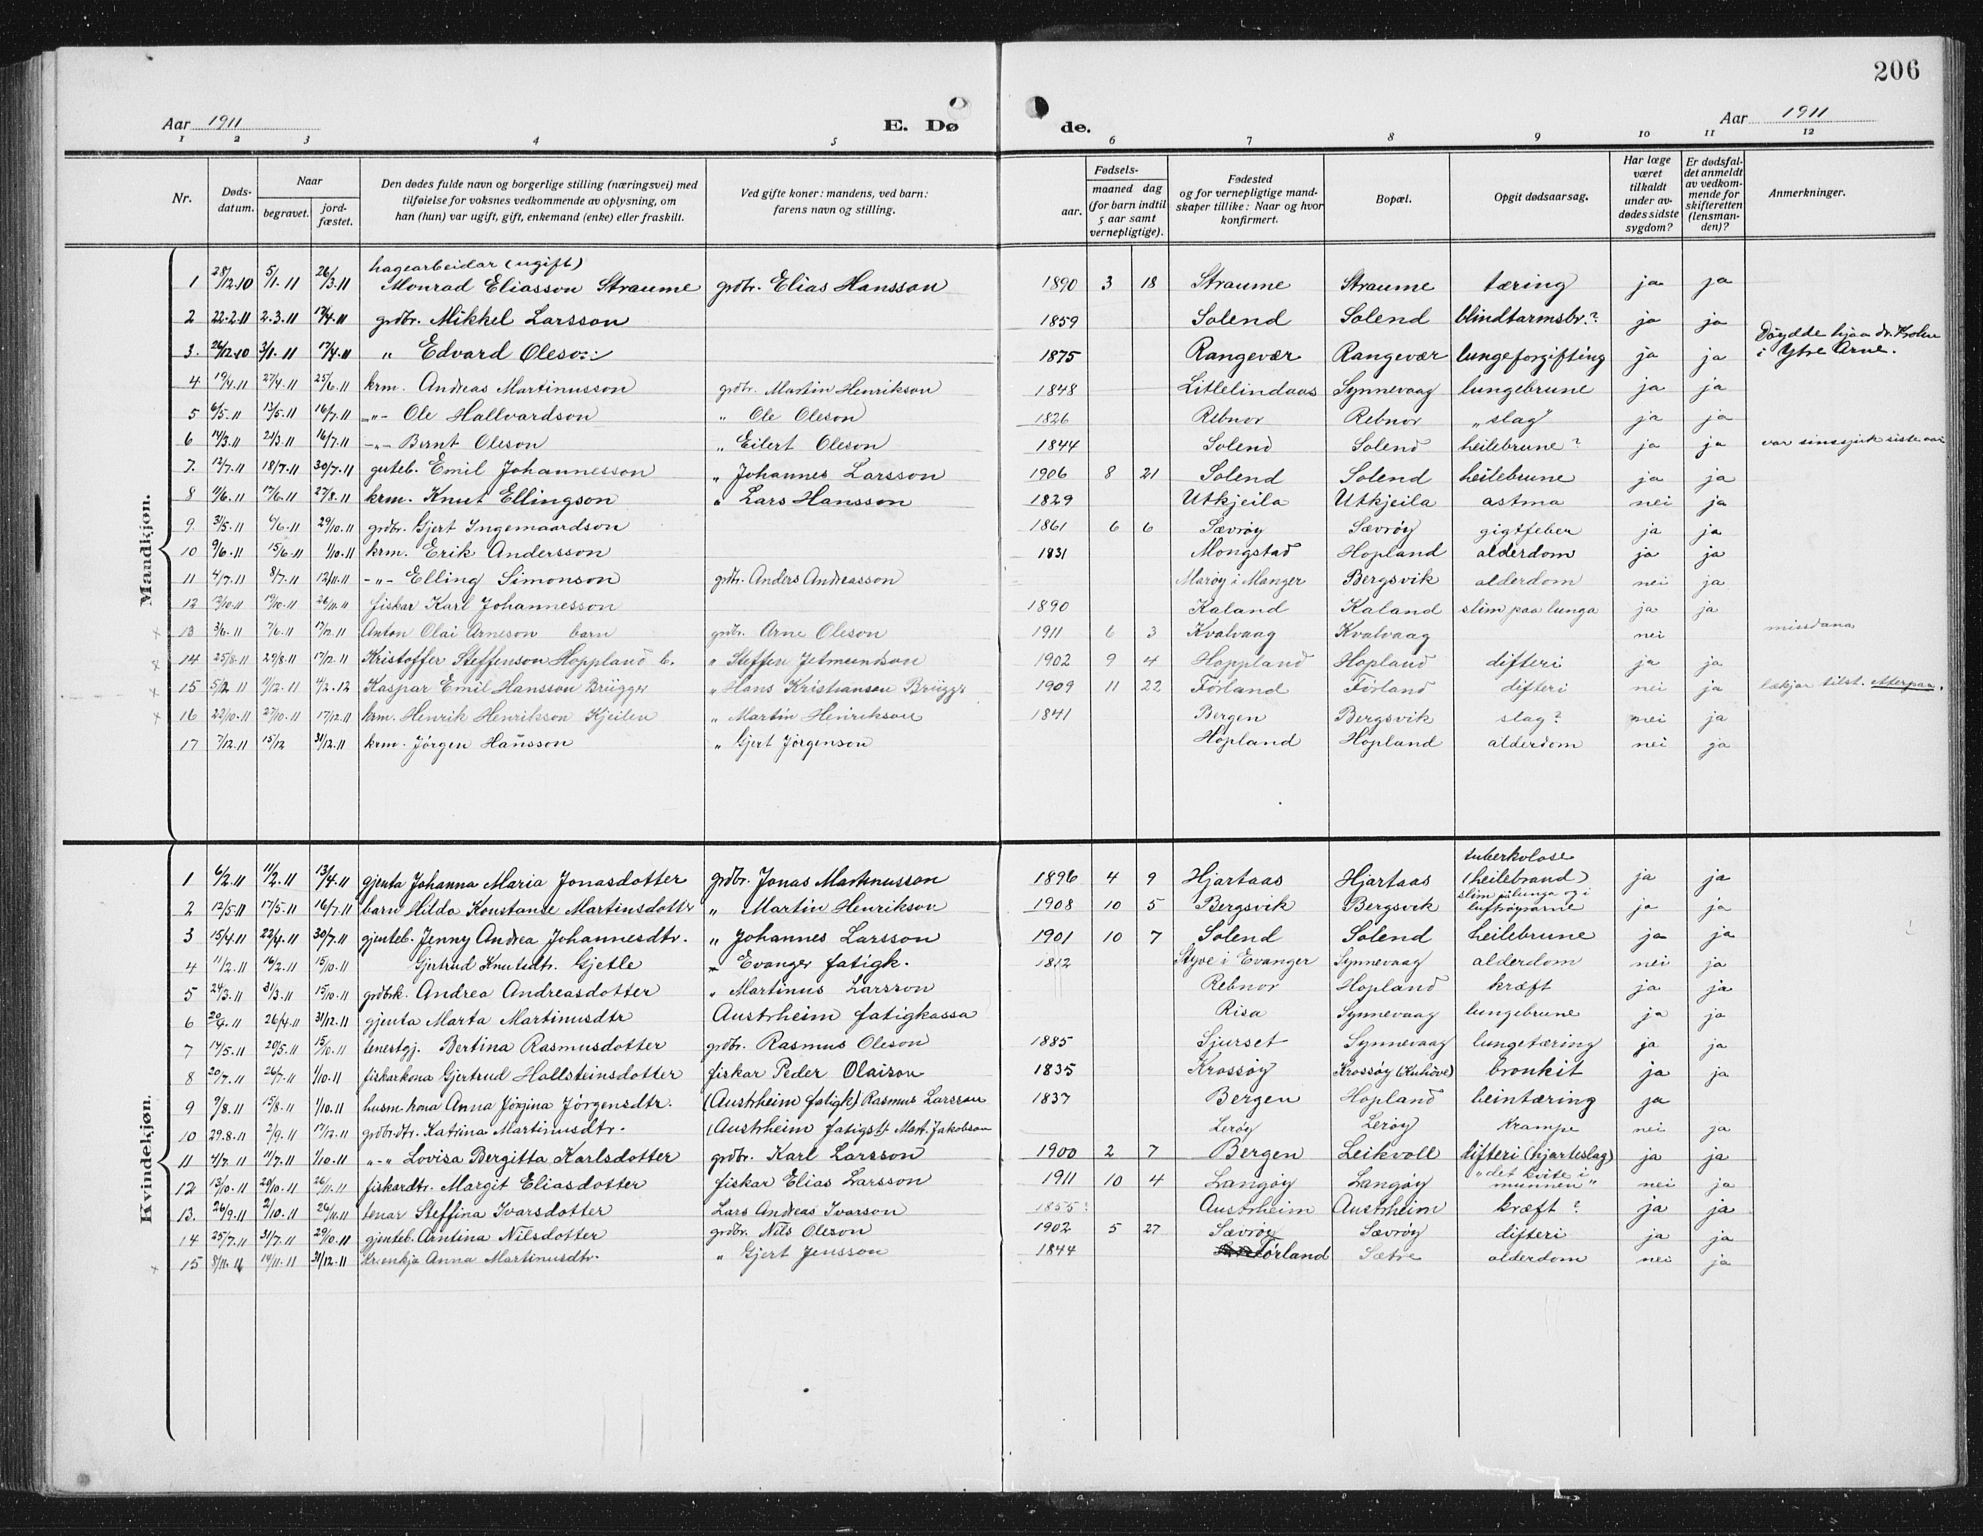 206
Aar 1911 E. Dø de. Aar 1911
1 2 3 4 5 6 7 8 9 10 11 12
Nr. Døds-datum. Naar begravet. jord-fæstet. Den dødes fulde navn og borgerlige stilling (næringsvei) med tilføielse for voksnes vedkommende av oplysning, om han (hun) var ugift, gift, enkemand (enke) eller fraskilt. Ved gifte koner: mandens, ved barn: farens navn og stilling. Fødsels- aar. maaned dag (for barn indtil 5 aar samt vernepligtige). Fødested og for vernepligtige mand-skaper tillike: Naar og hvor konfirmert. Bopæl. Opgit dødsaarsag. Har læge været tilkaldt under av-dødes sidste sygdom? Er dødsfal-det anmeldt av vedkom-mende for skifteretten (lensman-den)? Anmerkninger.
Mandkjøn.
hagearbeidar (ugift)
1 28/12.10 5/1.11 26/3.11 Monrad Eliasson Straume grdbr. Elias Hansson 1890 3 18 Straume Straume tæring ja ja
2 22.2.11 2.3.11 17/4.11 grdbr. Mikkel Larsson 1859 Solend Solend blindtarmsbr.? ja ja
3. 26/12.10 3/1.11 17/4.11 " Edvard Oleson 1875 Rangevær Rangevær lungeforgifting ja ja Døydde hjaa dr. Krohn i Ytre Arne.
4 19/4.11 27/4.11 25/6.11 krm. Andreas Martinusson grdbr. Martin Henrikson 1848 Litlelindaas Synnevaag lungebrune ja ja
5 6/5.11 13/5.11 16/7.11 -"- Ole Hallvardson " Ole Oleson 1826 Rebnor Rebnor "slag" ja ja
6 14/3.11 21/3.11 16/7.11 -"- Bernt Oleson " Eilert Oleson 1844 Solend Solend heilebrune? ja ja var sinssjuk siste aar
7. 12/7.11 18/7.11 30/7.11 guteb. Emil Johannesson " Johannes Larsson 1906 8 21 Solend Solend heilebrune ja ja
8 11/6.11 17/6.11 27/8.11 krm. Knut Ellingson " Lars Hansson 1829 Utkjeila Utkjeila astma nei ja
9. 31/5.11 6/6.11 29/10.11 grdbr. Gjert Ingemaardson 1861 6 6 Sævrøy Sævrøy gigtfeber ja ja
10 9/6.11 15/6.11 1/10.11 krm. Erik Andersson 1831 Mongstad Hopland alderdom ja ja
11 4/7.11 8/7.11 12/11.11 -"- Elling Simonson grdbr. Anders Andreasson Marøy i Manger Bergsvik alderdom nei ja
12 12/10.11 19/10.11 26/11.11 fiskar Karl Johannesson 1890 Kaland Kaland slim paa lunga ja ja
x 13 3/6.11 7/6.11 17/12.11 Anton Olai Arneson barn grdbr. Arne Oleson 1911 6 3 Kvalvaag Kvalvaag nei missdana
x 14 25/8.11 29/8.11 17/12.11 Kristoffer Steffenson Hoppland b. " Steffen Jetmundson 1902 9 4 Hoppland Hopland difteri ja ja
x 15 5/12.11 11/12.11 4/2.12 Kaspar Emil Hansson Brügger " Hans Kristiansen Brügger 1909 11 22 Förland Förland difteri nei ja lækjar tilst. etterpaa.
x 16 22/10.11 27/10.11 17/12.11 krm. Henrik Henrikson Kjeilen " Martin Henrikson 1841 Bergen Bergsvik slag? nei ja
17 7/12.11 15/12 31/12.11 krm. Jørgen Hansson " Gjert Jørgenson Hopland Hopland alderdom nei ja
Kvindekjøn.
1 6/2.11 11/2.11 13/4.11 gjenta Johanna Maria Jonasdotter grdbr. Jonas Martinusson 1896 4 9 Hjartaas Hjartaas tuberkolose (heilebrand) ja ja
2 12/5.11 17/5.11 16/7.11 barn Hilda Konstanse Martinsdotter " Martin Henrikson 1908 10 5 Bergsvik Bergsvik slim på lunga og i luftrøyrarne ja ja
3 15/4.11 22/4.11 30/7.11 gjenteb. Jenny Andrea Johannesdtr. " Johannes Larsson 1901 10 7 Solend Solend heilebrune ja ja
4 11/2.11 16/2.11 15/10.11 Gjertrud Knutsdtr. Gjetle " Evanger fatigk. 1812 Styve i Evanger Synnevaag alderdom nei ja
5 24/3.11 31/3.11 15/10.11 grdbrk. Andrea Andreasdotter " Martinus Larsson Rebnor Hopland kræft ja ja
6 20/4.11 26/4.11 31/12.11 gjenta Marta Martinusdtr Austrheim fatigkassa Risa Synnevaag lungebrune ja ja
7 14/5.11 20/5.11 15/10.11 tenestgj. Bertina Rasmusdotter grdbr. Rasmus Oleson 1885 Sjurset Synnevaag lungetæring ja ja
8 20/7.11 26/7.11 1/10.11 fiskarkona Gjertrud Hallsteinsdotter fiskar Peder Olaison 1835 Krossøy Krossøy (Kuhøve) bronkit ja ja
9 9/8.11 15/8.11 1/10.11 husm.kona Anna Jørgina Jørgensdtr. (Austrheim fatigk) Rasmus Larsson 1837 Bergen Hopland beintæring ja
10 29.8.11 2/9.11 17/12.11 grdbr.dtr. Katrina Martinusdtr. (Austrheim fatigst Mart. Jakobson Lerøy Lerøy Krampe nei ja
11 4/7.11 11/7.11 1/10.11 "-" Lovisa Bergitta Karlsdotter grdbr. Karl Larsson 1900 2 7 Bergen Leikvoll difteri (hjarteslag) ja ja
12 13/10.11 20/10.11 26/11.11 fiskardtr. Margit Eliasdotter fiskar Elias Larsson 1911 10 4 Langøy Langøy "det kvite i munnen" nei ja
13. 26/9.11 2/10.11 26/11.11 tenar Steffina Ivarsdotter Lars Andreas Ivarson 1855? Austrheim Austrheim kræft? ja ja
14 25/7.11 31/7.11 29/10.11 gjenteb. Antina Nilsdotter grdbr. Nils Oleson 1902 5 27 Sævrøy Sævrøy difteri ja ja
x 15 8/11.11 14/11.11 31/12.11 Kr.enkja Anna Martinusdtr. " Gjert Jensson 1844 Förland Sætre alderdom nei ja